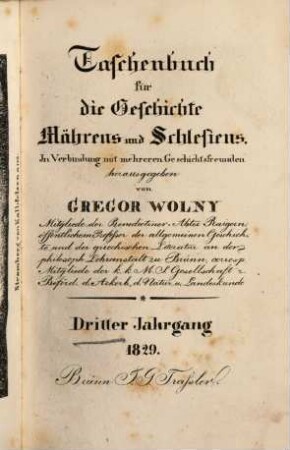 Taschenbuch
für
die Geschichte
Mährens und Schlesiens.
In Verbindung mit mehreren Geschichtsfreunden
herausgegeben
von
GREGOR WOLNY
Mitgliede der Benedictiner-Abtei Raigern
öffentlichem Professor der allgemeinen Geschich-
te und der griechischen Literatur an der
philosoph. Lehranstalt zu Brünn, corresp.
Mitgliede der k. k. M. S. Gesellschaft z.
Beförd. d. Ackerb., d. Natur u. Landeskunde
Dritter Jahrgang
1829.
Brünn J. G. Trassler.